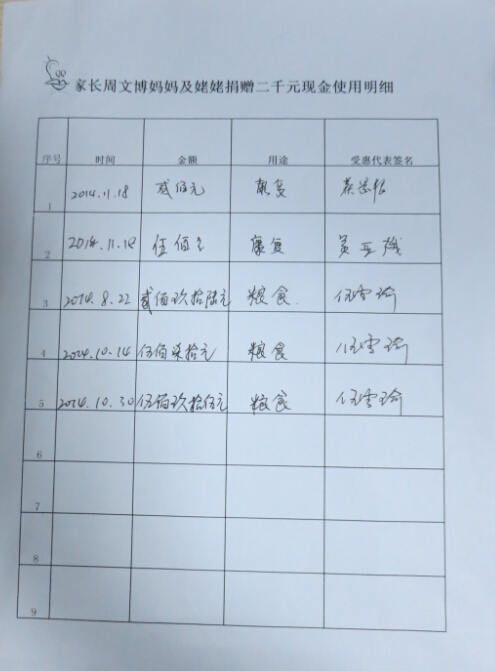 家长周文博妈妈及姥姥捐赠二千元现金使用明细
序号 时间 金额 用途 受惠代表签名
1 2014.11.18 贰佰元 康复
2 2014.11.18 伍佰元 康复
3 2014.8.22 贰佰玖拾陆元 粮食. 伍雪瑜
4 2014.10.14 伍佰柒拾元 粮食 伍雪瑜
5 2014.10.30 伍佰玖拾伍元 粮食 伍雪瑜
6
7
8
9